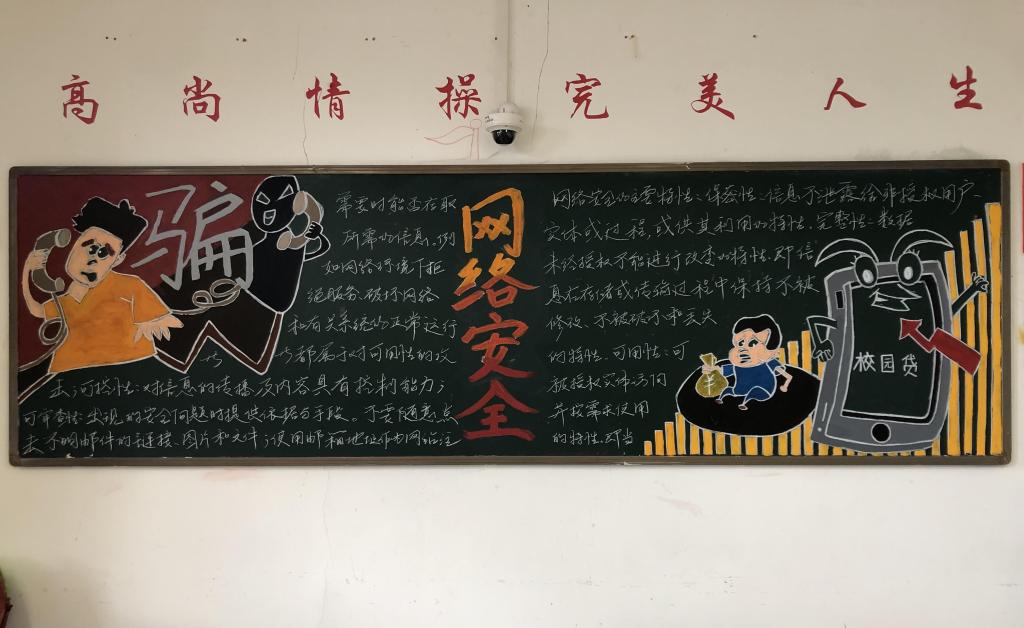 高尚情操完美人生
骗
网络安全
网络安全的主要特性:保密性:信息不泄露给非授权用户
实体或过程,或供其利用的特性。完整性:数据
未经授权不能进行改变的特性。即信
息在存储或传输过程中保持不被
修改、不被破坏和丢失
的特性。可用性:可
被授权实体访问
并按需求使用
的特性。即当
需要时能否存取
所需的信息。例
如网络环境下拒
绝服务、破坏网络
和有关系统的正常运行
等都属于对可用性的攻
击;可控性:对信息的传播及内容具有控制能力;
可审查性:出现的安全问题时提供依据与手段。不要随意点
去不明邮件的链接、图片和文件;使用邮箱地址作为网站注
校园贷
¥